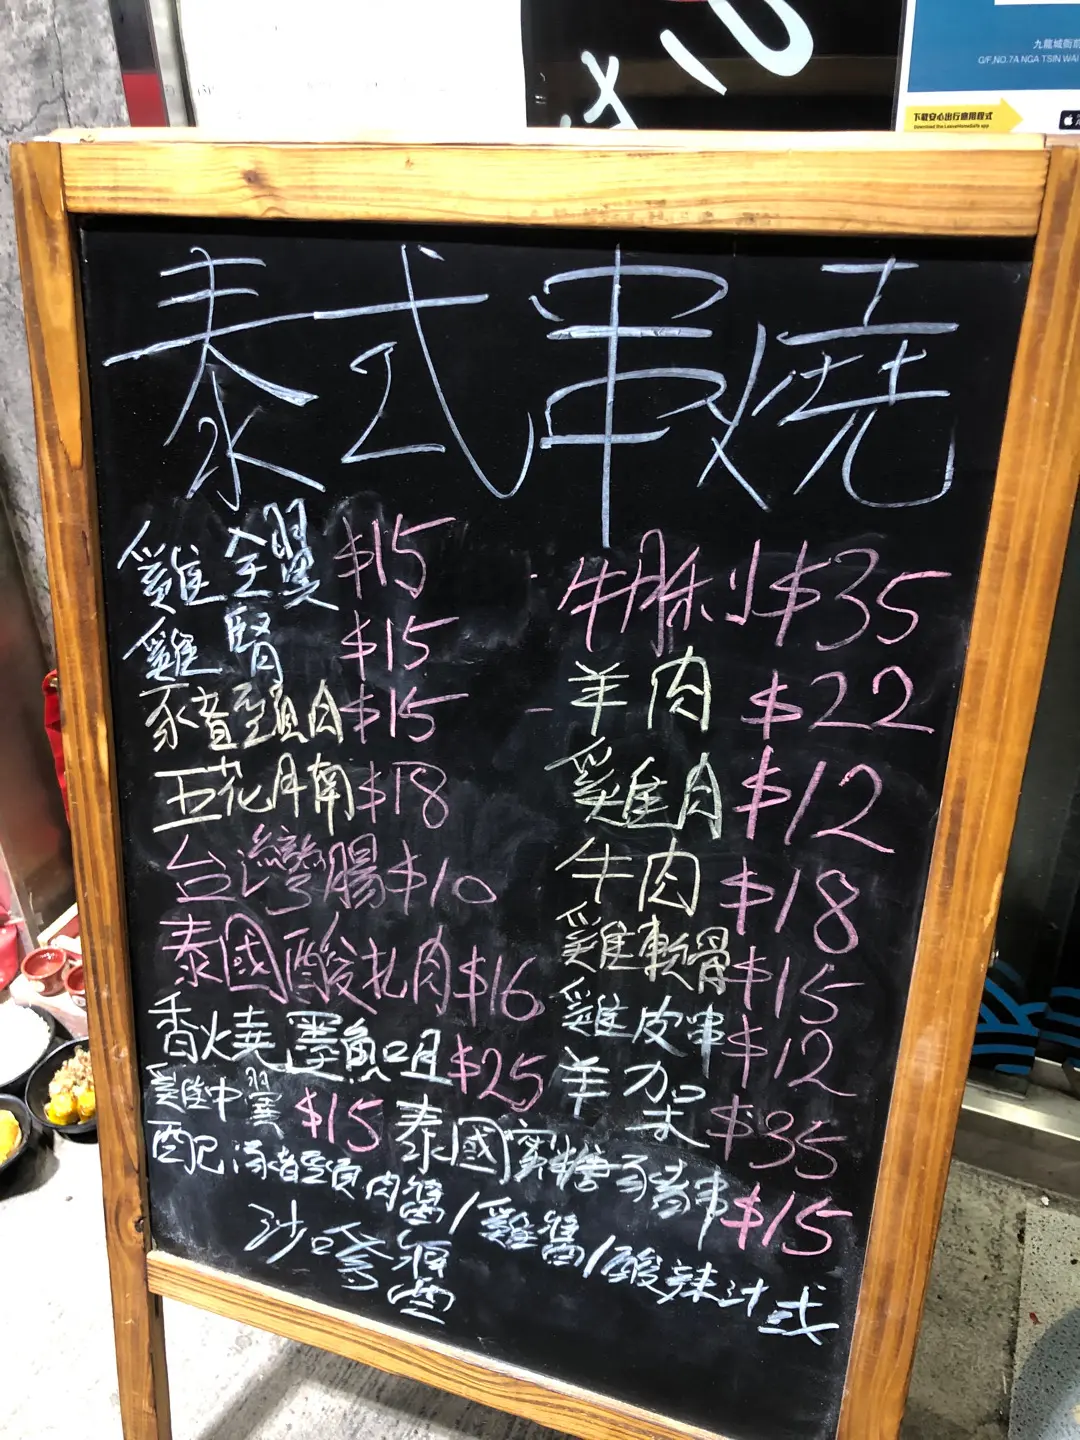 九龍城衙前
G/F,NO.7A NGA TSIN WAI
下載安心出行應用程式
Download the LeaveHomeSafe app
泰式串燒
雞全翼 $15
雞腎 $15
豕者頸肉 $15
五花月南 $18
台灣腸 $10
泰國酸扎肉 $16
香燒墨魚咀 $25
雞中翼 $15
牛脷 $35
羊肉 $22
雞肉 $12
牛肉 $18
雞軟骨 $15
雞皮串 $12
羊架 $35
泰國蜜糖豬串 $15
配豬頸肉醬/雞醬/酸辣汁或
沙爹酱